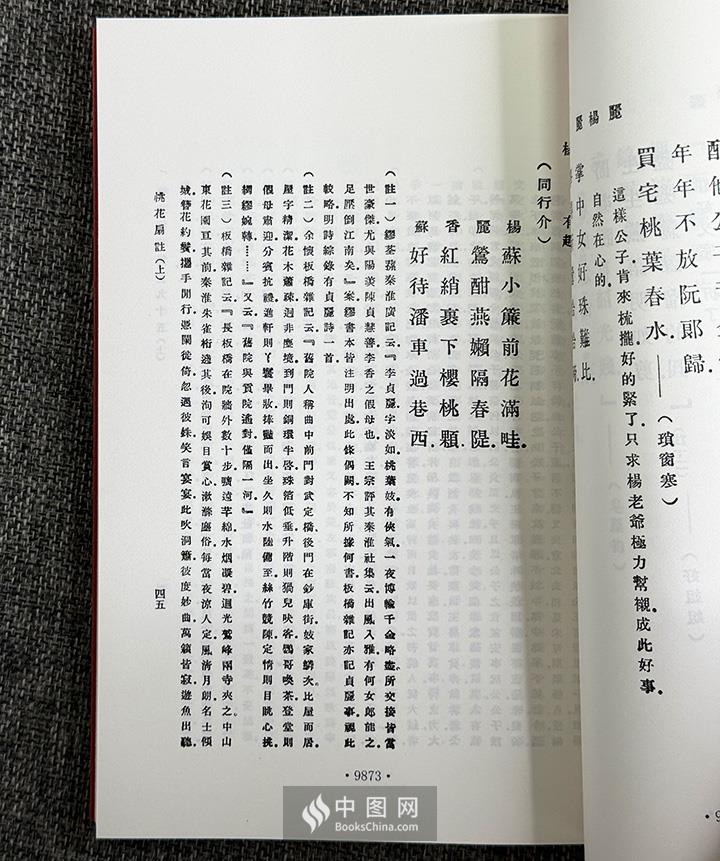 年年不放阮郎歸.
買宅桃葉春水——（瑣窗寒）
麗 這樣公子肯來梳攏好的緊了只求楊老爺極力幫襯成此好事.
楊 自然在心的.
掌中女好珠難比.
（同行介）
楊 蘇小簾前花滿畦.
麗 鶯酣燕嬾隔春隄.
香 紅綃裹下櫻桃顆.
蘇 好待潘車過巷西.
（註一）繆荃孫秦淮廣記云『李貞麗字淡如桃葉妓有俠氣一夜博輸千金略盡所交接皆當
世豪傑尤與陽羨陳貞慧善李香之假母也. 王宗評其秦淮社集云出風入雅有何女郎能之
足壓倒江南矣』案繆書本皆注明出處此條偶闕不知所據何書板橋雜記亦記貞麗事視此
較略明詩綜錄有貞麗詩一首.
（註二）余懷板橋雜記云『舊院人稱曲中前門對武定橋後門在鈔庫街妓家鱗次比屋而居
屋宇精潔花木蕭疎迥非塵境到門則銅環半啓珠箔低垂升階則猧兒吠客鸚哥喚茶登堂則
假母肅迎分賓抗禮進軒則丫鬟畢妝捧豔而出坐久則水陸備至絲竹競陳定情則目眺心挑
綢繆婉轉……』又云『舊院與貢院遙對僅隔一河』
（註三）板橋雜記云『長板橋在院牆外數十步曠遠芊綿水烟凝碧迴光鷲峰兩寺夾之中山
東花園亘其前秦淮朱雀桁遶其後洵可娛目賞心漱滌塵俗每當夜涼人定風清月朗名士傾
城簪花約鬢攜手閒行憑闌徙倚忽遇彼姝笑言宴宴此吹洞簫彼度妙曲萬籟皆寂遊魚出聽.
桃花扇註（上）
四五
·9873·
中图网
BooksChina.com